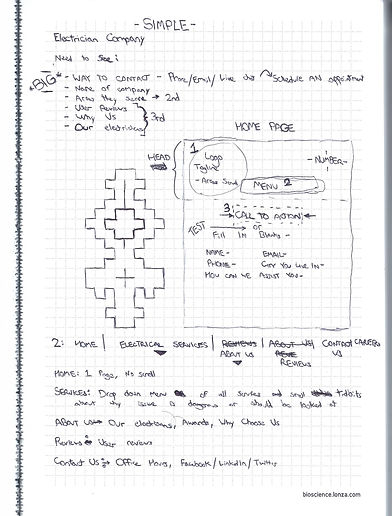 - SIMPLE -
Electrician Company
Need to See:
*BIG* - WAY TO CONTACT - Phone/Email/Live chat → Schedule AN appointment
- Name of company
- Areas they serve → 2nd
- User Reviews
- Why Us } 3rd
- Our electricians
HOME PAGE
HEAD
1 Logo
Tagline
- NUMBER -
- Areas Served
MENU 2
3
→ CALL TO ACTION! ←
TEST → or
Fill In Blanks -
NAME - EMAIL -
PHONE - CITY YOU LIVE IN -
HOW CAN WE ASSIST YOU -
2: HOME | ELECTRICAL SERVICES | REVIEWS | ABOUT US | CONTACT US | CAREERS
ABOUT US
REVIEWS
HOME: 1 Page, No scroll
SERVICES: Drop down menu of all services and small tidbits
about why issue is dangerous or should be looked at
ABOUT US → Our electricians, Awards, Why Choose Us
Reviews → User reviews
Contact Us → Office Hours, Facebook/LinkedIn/Twitter
bioscience.lonza.com